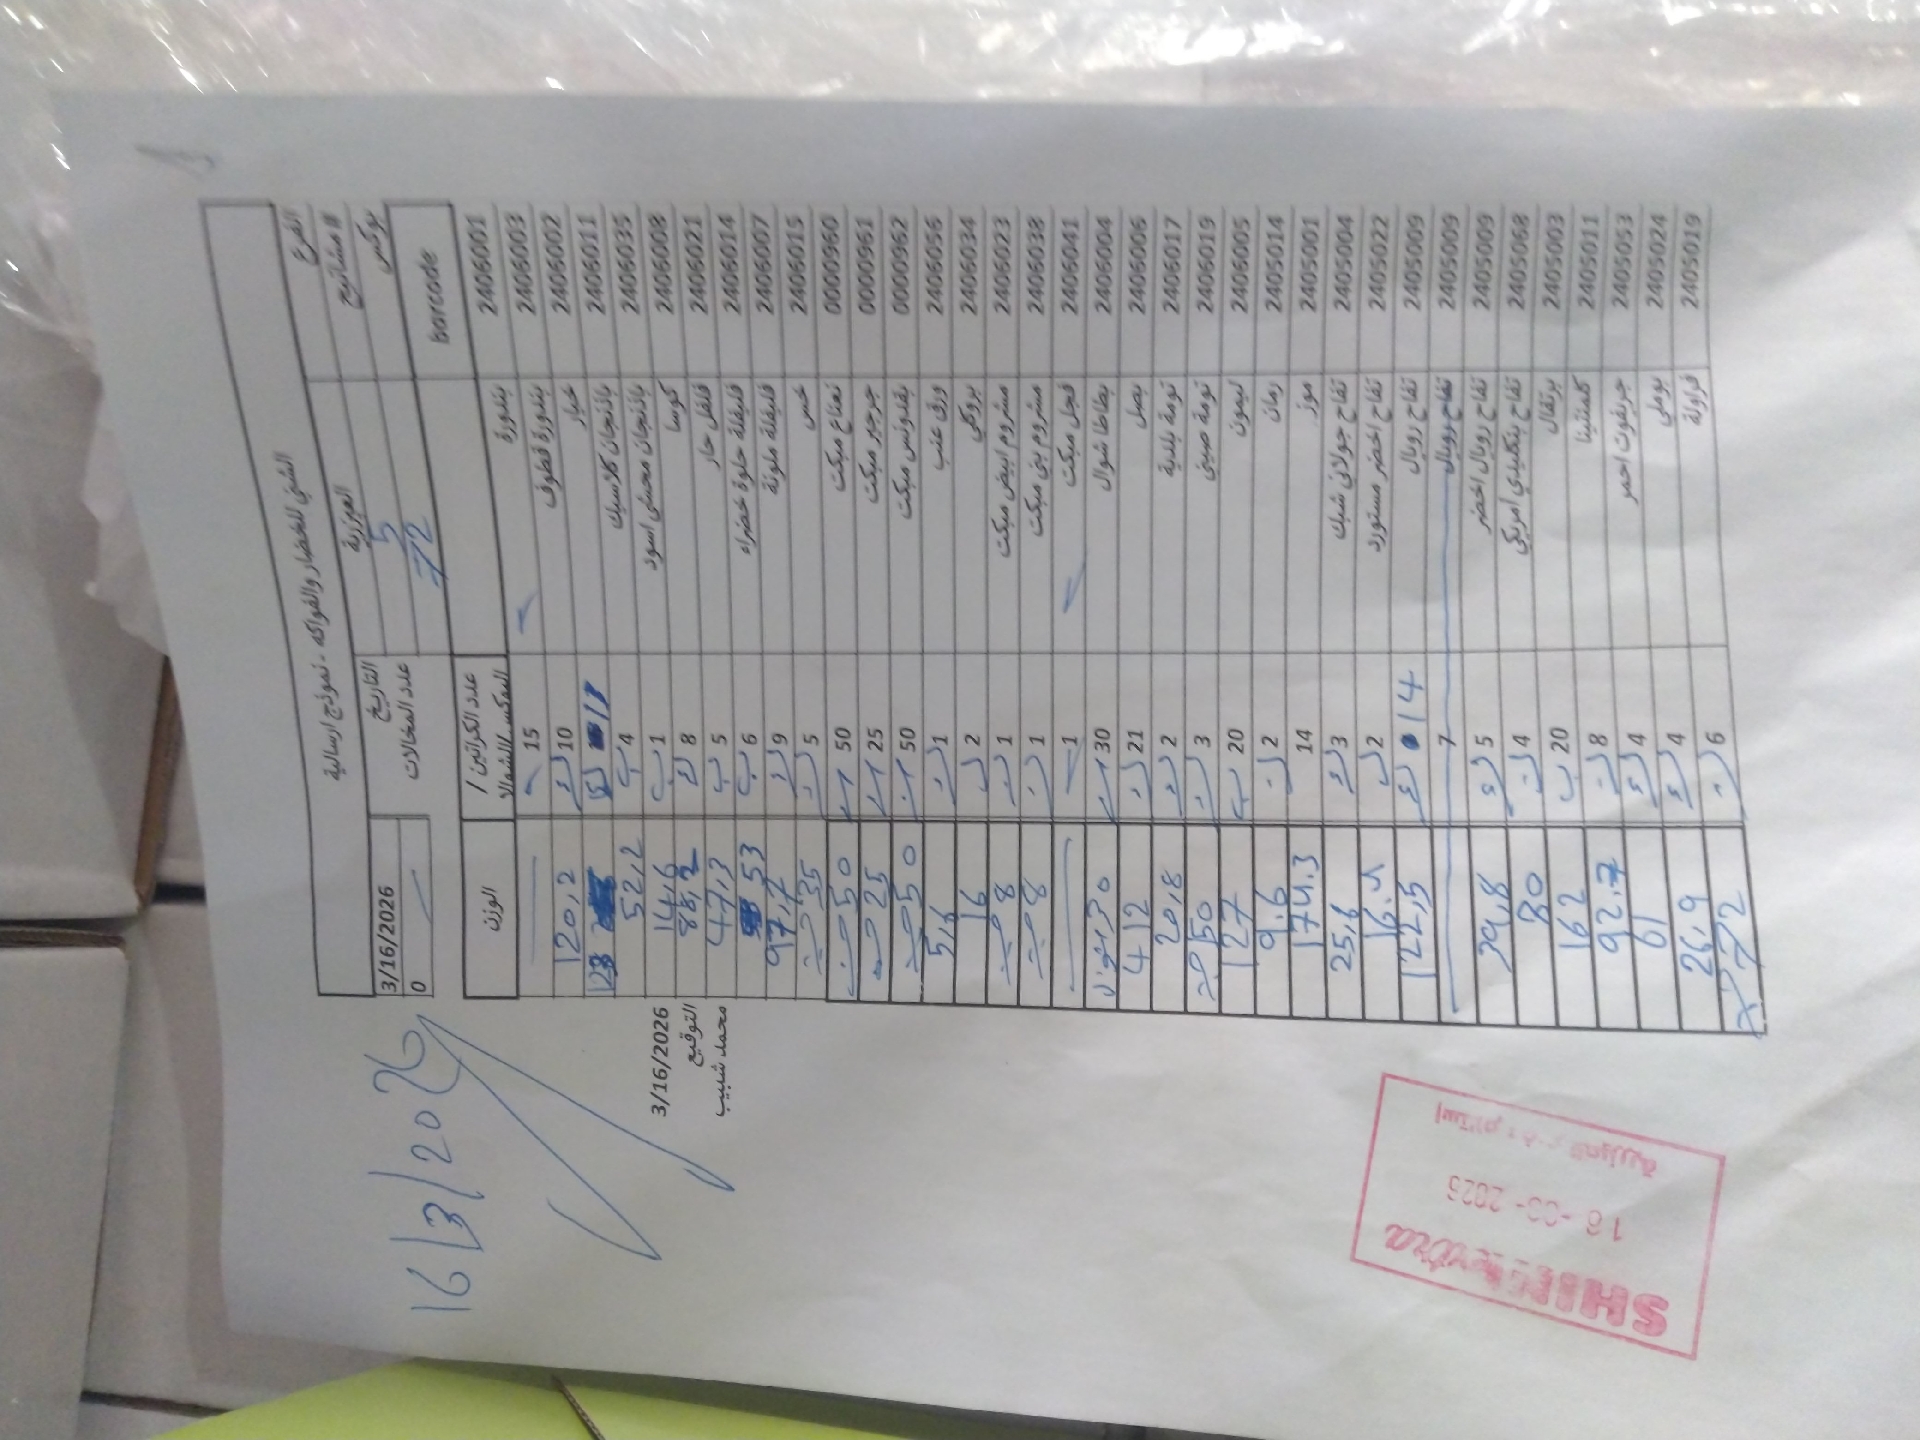 الشني للخضار والفواكه - نموذج ارسالية
الفرع العيزرية التاريخ 3/16/2026
# مشاتيح 5 عدد المخالات 0
بوكس 272
barcode عدد الكراتين / البوكس/الشوالا الوزن
24060001 بندورة 15
24060003 بندورة قطوف 10 120,2
24060002 خيار 11 123
24060011 باذنجان كلاسيك 4 52,2
24060035 باذنجان محشي اسود 1 14,6
24060008 كوسا 8 88,2
24060021 فلفل حار 5 47,3
24060014 فليفلة حلوة خضراء 6 53
24060007 فليفلة ملونة 9 97,2
24060015 خس 5 35
00000960 نعناع مبكت 50 50
00000961 جرجير مبكت 25 25
00000962 بقدونس مبكت 50 50
24060056 ورق عنب 1 5,6
24060034 بروكلي 2 16
24060023 مشروم ابيض مبكت 1 8
24060038 مشروم بني مبكت 1 8
24060041 فجل مبكت 1
24060004 بطاطا شوال 30 30
24060006 بصل 21 412
24060017 ثومة بلدية 2 20,8
24060019 ثومة صيني 3 50
24060005 ليمون 20 127
24050014 رمان 2 9.6
24050001 موز 14 174.3
24050004 تفاح جولاني شبك 3 25,6
24050022 تفاح اخضر مستورد 2
24050009 تفاح رويال 14 122,5
24050009 تفاح رويال 7
24050009 تفاح رويال اخضر 5 39,8
24050068 أمريكي تفاح 4 80
24050003 برتقال 20 162
24050011 كلمنتينا 8 92.7
24050053 جريفوت احمر 4 61
24050024 بوملي 4 26,9
24050019 فراولة 6 272
3/16/2026
التوقيع
محمد شبيب
16/3/2026
SHINI